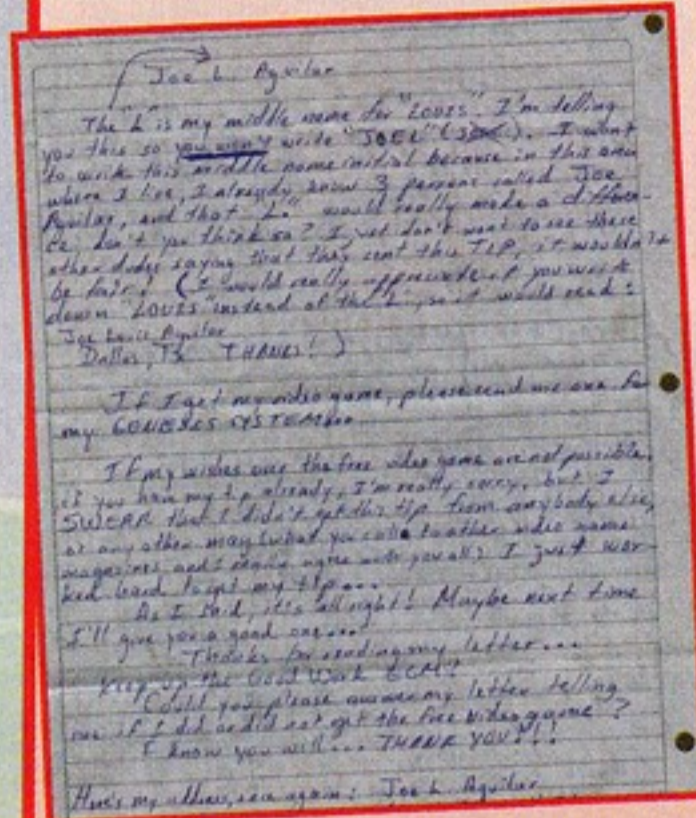 Joe L Aguilar
The "L" is my middle name for "LOUIS". I'm telling
you this so you won't write "JOEL" ( ). I want
to write this middle name initial because in this area
where I live, I already know 3 persons called Joe
Aguilar, and that "L." would really made a differen-
ce, don't you think so? I just don't want to see these
other dudes saying that they sent this TIP, it wouldn't
be fair! (I would really appreciate if you write
down "LOUIS" instead of the L., so it would read:
Joe Louis Aguilar
Dallas, Tx. THANKS!)
If I get my video game, please send me one for
my GENESIS SYSTEM...
If my wishes over the free video game are not possible,
if you have my tip already, I'm really sorry, but I
SWEAR that I didn't get this tip from anybody else,
or any other mags (what you call to other video game
magazines and I agree with you all) I just wor-
ked hard to get my tip...
As I said, it's all right! Maybe next time
I'll give you a good one...
Thanks for reading my letter...
Keep up the Good Work EGM!
Could you please answer my letter telling
me if I did or did not get the free video game?
I know you will... THANK YOU!!!
Here's my address, once again: Joe L. Aguilar